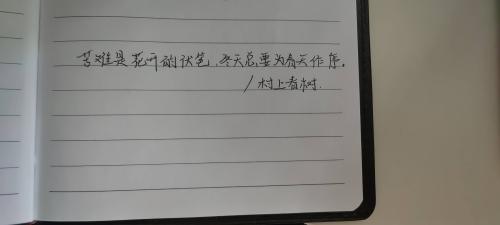 苦难是花开的伏笔,冬天总要为春天作序.
/村上春树.